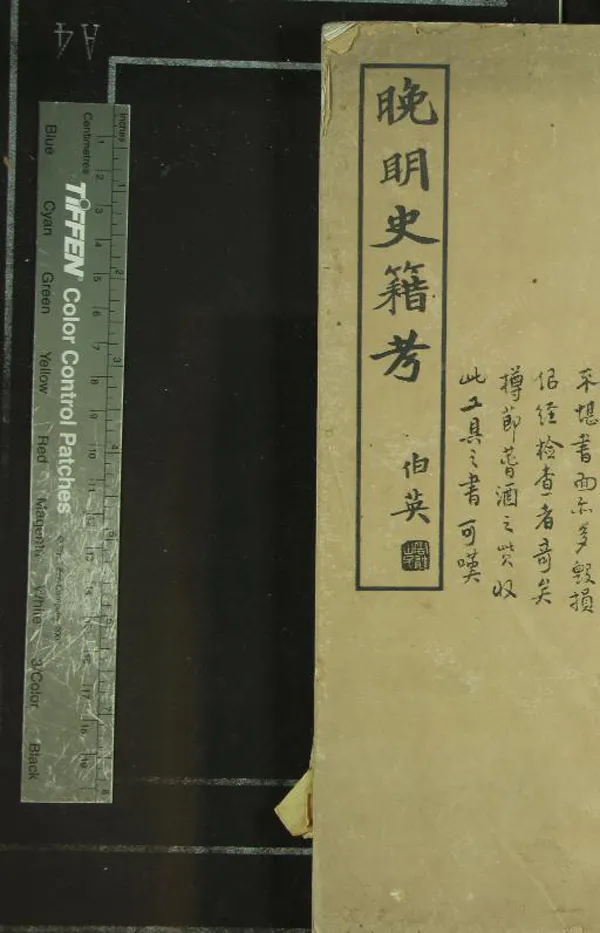 晚明史籍考
伯英
采堪書而亦多毀損
佀经檢查者奇矣
撙節萻酒之貲收
此工具之書可嘆
A4
Inches
Centimetres
TIFFEN Color Control Patches
Blue
Cyan
Green
Yellow
Red
Magenta
White
3/Color
Black